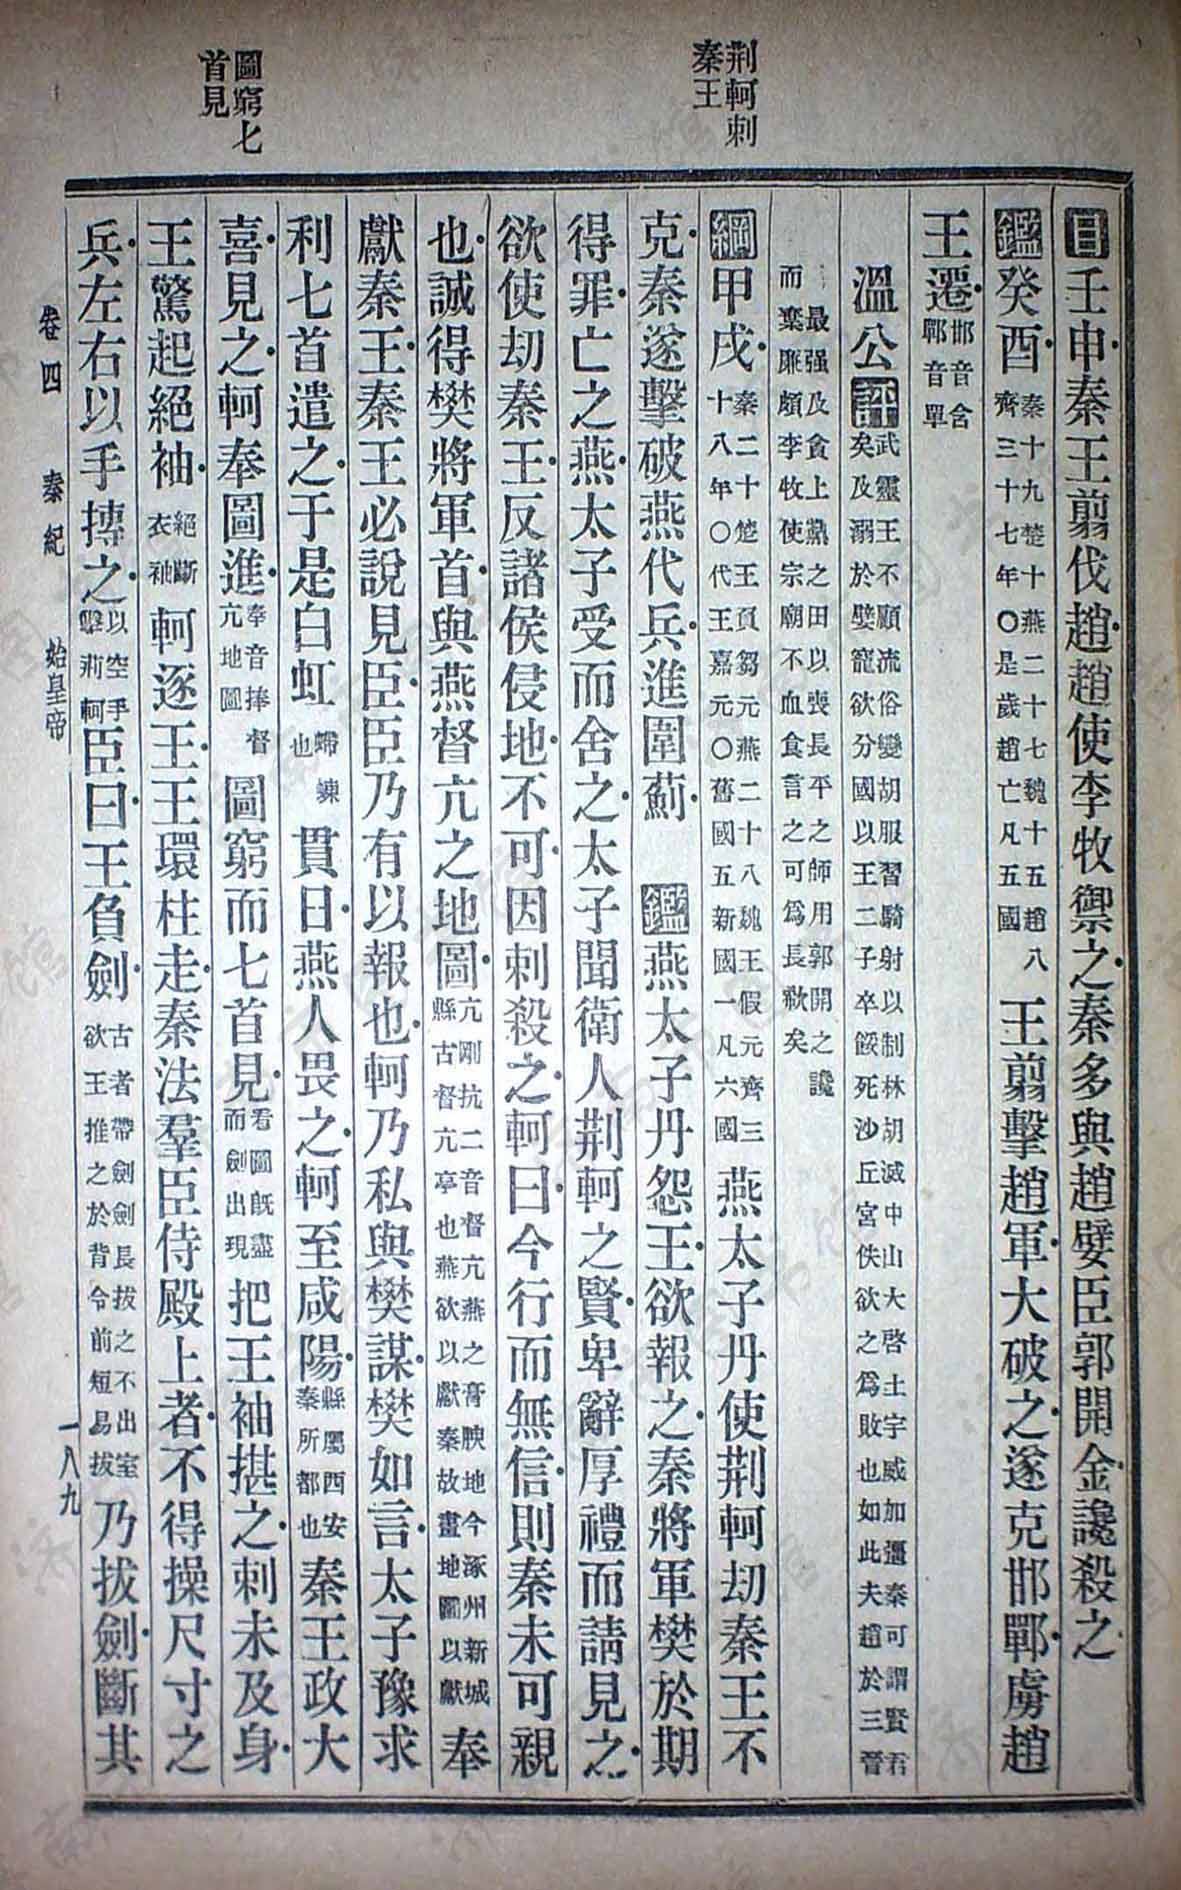 荆軻刺
秦王
圖窮匕
首見
目壬申秦王翦伐趙趙使李牧禦之秦多與趙嬖臣郭開金讒殺之
鑑癸酉秦十九楚十燕二十七魏十五趙八齊三十七年〇是歲趙亡凡五國王翦擊趙軍大破之遂克邯鄲虜趙
王遷邯音含鄲音單
溫公評武靈王不顧流俗變胡服習騎射以制林胡滅中山大啓土宇威加彊秦可謂賢君矣及溺於嬖寵欲分國以王二子卒餒死沙丘宮佚欲之爲敗也如此夫趙於三晉
最强及貪上黨之田以喪長平之師用郭開之讒而棄廉頗李牧使宗廟不血食言之可爲長歎矣
綱甲戌秦二十楚王負芻元燕二十八魏王假元齊三十八年〇代王嘉元〇舊國五新國一凡六國燕太子丹使荆軻劫秦王不
克秦遂擊破燕代兵進圍薊 鑑燕太子丹怨王欲報之秦將軍樊於期
得罪亡之燕太子受而舍之太子聞衛人荆軻之賢卑辭厚禮而請見之
欲使劫秦王反諸侯侵地不可因刺殺之軻曰今行而無信則秦未可親
也誠得樊將軍首與燕督亢之地圖亢剛抗二音督亢燕之膏腴地今涿州新城縣古督亢亭也燕欲以獻秦故畫地圖以獻奉
獻秦王秦王必說見臣臣乃有以報也軻乃私與樊謀樊如言太子豫求
利七首遣之于是白虹螮蝀也貫日燕人畏之軻至咸陽縣屬西安秦所都也秦王政大
喜見之軻奉圖進奉音捧督亢地圖圖窮而七首見看圖旣盡而劍出現把王袖揕之刺未及身
王驚起絕袖絕斷衣袖軻逐王王環柱走秦法羣臣侍殿上者不得操尺寸之
兵左右以手搏之以空手擊荊軻臣曰王負劍古者帶劍劍長拔之不出室欲王推之於背令前短易拔乃拔劍斷其
卷四 秦紀 始皇帝 一八九